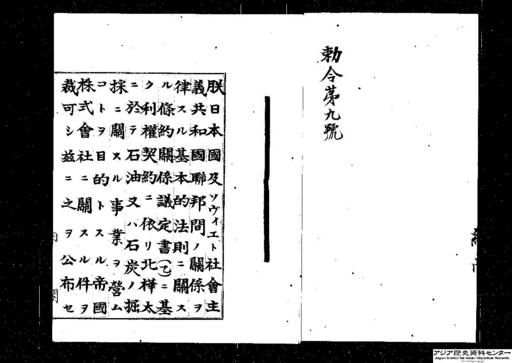 勅令第九號
朕日本國及ソヴィエト社會主
義共和國聯邦間ノ關係ヲ
律スル基本的法則ニ關ス
ル條約關係議定書(乙)ニ基
ク利權契約ニ依リ北樺太
ニ於テ石油又ハ石炭ノ掘
採ニ關スル事業ヲ營ム
コトヲ目的トスル帝國
株式會社ニ關スル件ヲ
裁可シ茲ニ之ヲ公布セ
アジア歴史資料センター
Japan Center for Asian Historical Records